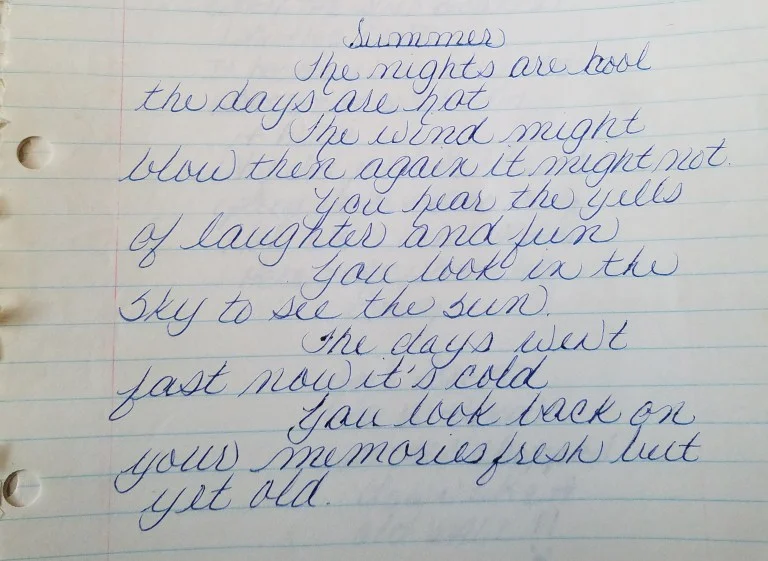 Summer
The nights are cool
the days are hot
The wind might
blow then again it might not.
You hear the yells
of laughter and fun
You look in the
sky to see the sun.
The days went
fast now it's cold
You look back on
your memories fresh but
yet old.